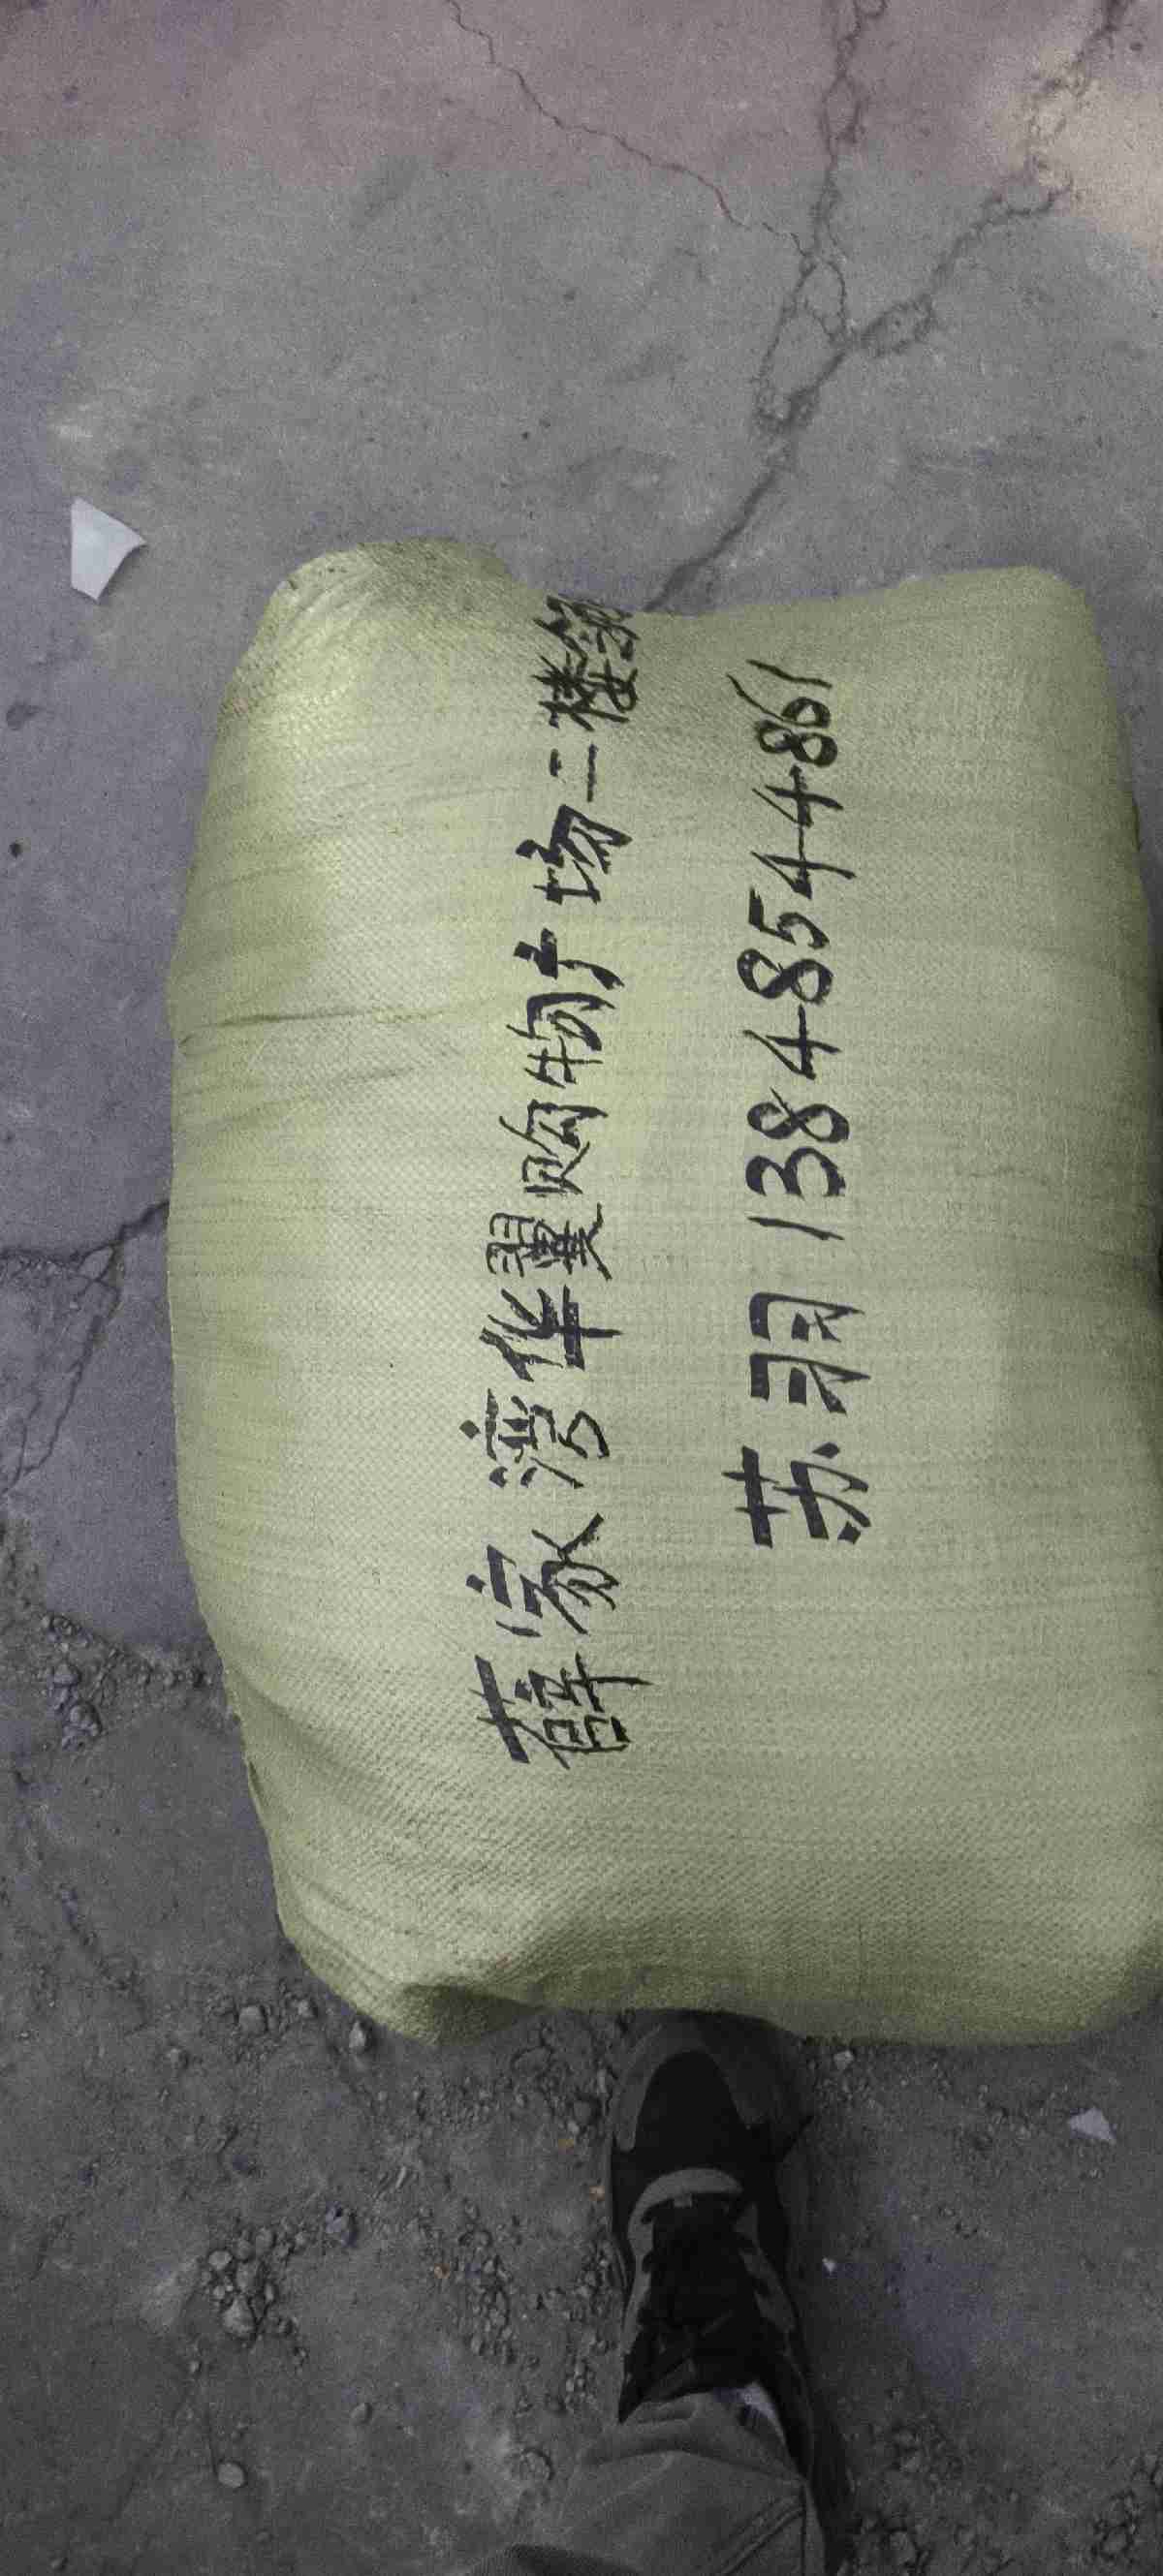 薛家湾华翼购物广场二楼
苏羽 13848544861